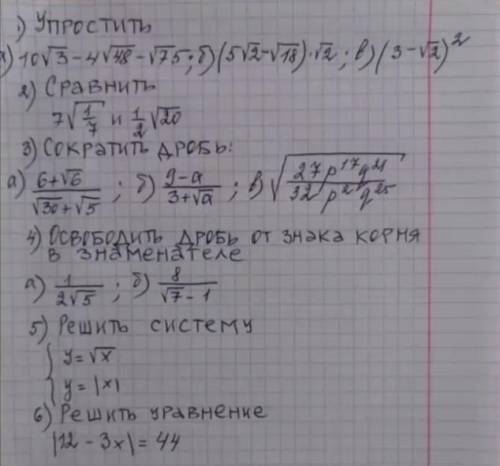 1) Упростить
а) 10√3 - 4√48 - √75; б) (5√2 - √18)·√2; в) (3 - √2)²
2) Сравнить
7√(1/7) и 1/2√20
3) Сократить дробь:
а) (6+√6)/(√30+√5); б) (9-a)/(3+√a); в) √(27p¹⁷q²¹/32p²q²⁵)
4) Освободить дробь от знака корня
в знаменателе
а) 1/(2√5); б) 8/(√7 - 1)
5) Решить систему
{ y = √x
{ y = |x|
6) Решить уравнение
|12 - 3x| = 44